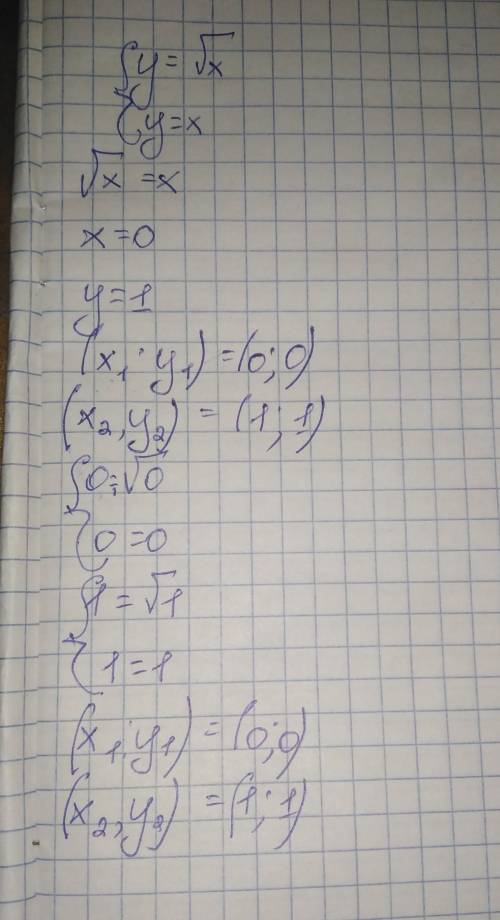 { y = √x
{ y = x
√x = x
x = 0
y = 1
(x₁; y₁) = (0; 0)
(x₂, y₂) = (1; 1)
{ 0 = √0
{ 0 = 0
{ 1 = √1
{ 1 = 1
(x₁; y₁) = (0; 0)
(x₂, y₂) = (1; 1)